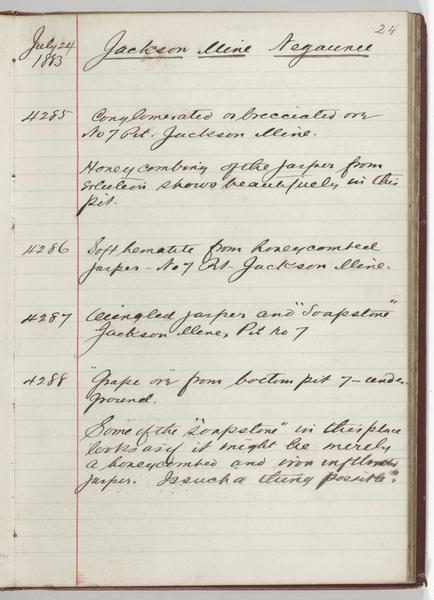 24
July 24 Jackson Mine Negaunee
1883
4285 Conglomerated or brecciated ore
No 7 Pit. Jackson Mine.
Honeycombing of the jasper from
solution shows beautifully in this
pit.
4286 Soft hematite from honeycombed
jasper - No 7 Pit - Jackson Mine.
4287 Mingled jasper and "Soapstone"
Jackson Mine, Pit No 7
4288 "Grape ore" from bottom pit 7 - under
ground.
Some of the "soapstone" in this place
looks as if it might be merely
a honeycombed and iron
jasper. Is such a thing possible?